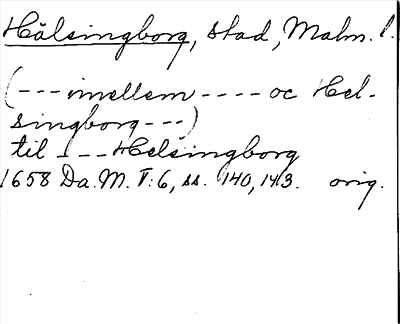 Hälsingborg, stad, Malm. l.
(--- imellem ---- oc Hel-
singborg ---)
til --- Helsingborg
1658 Da. M. V:6, ss. 140, 143. orig.